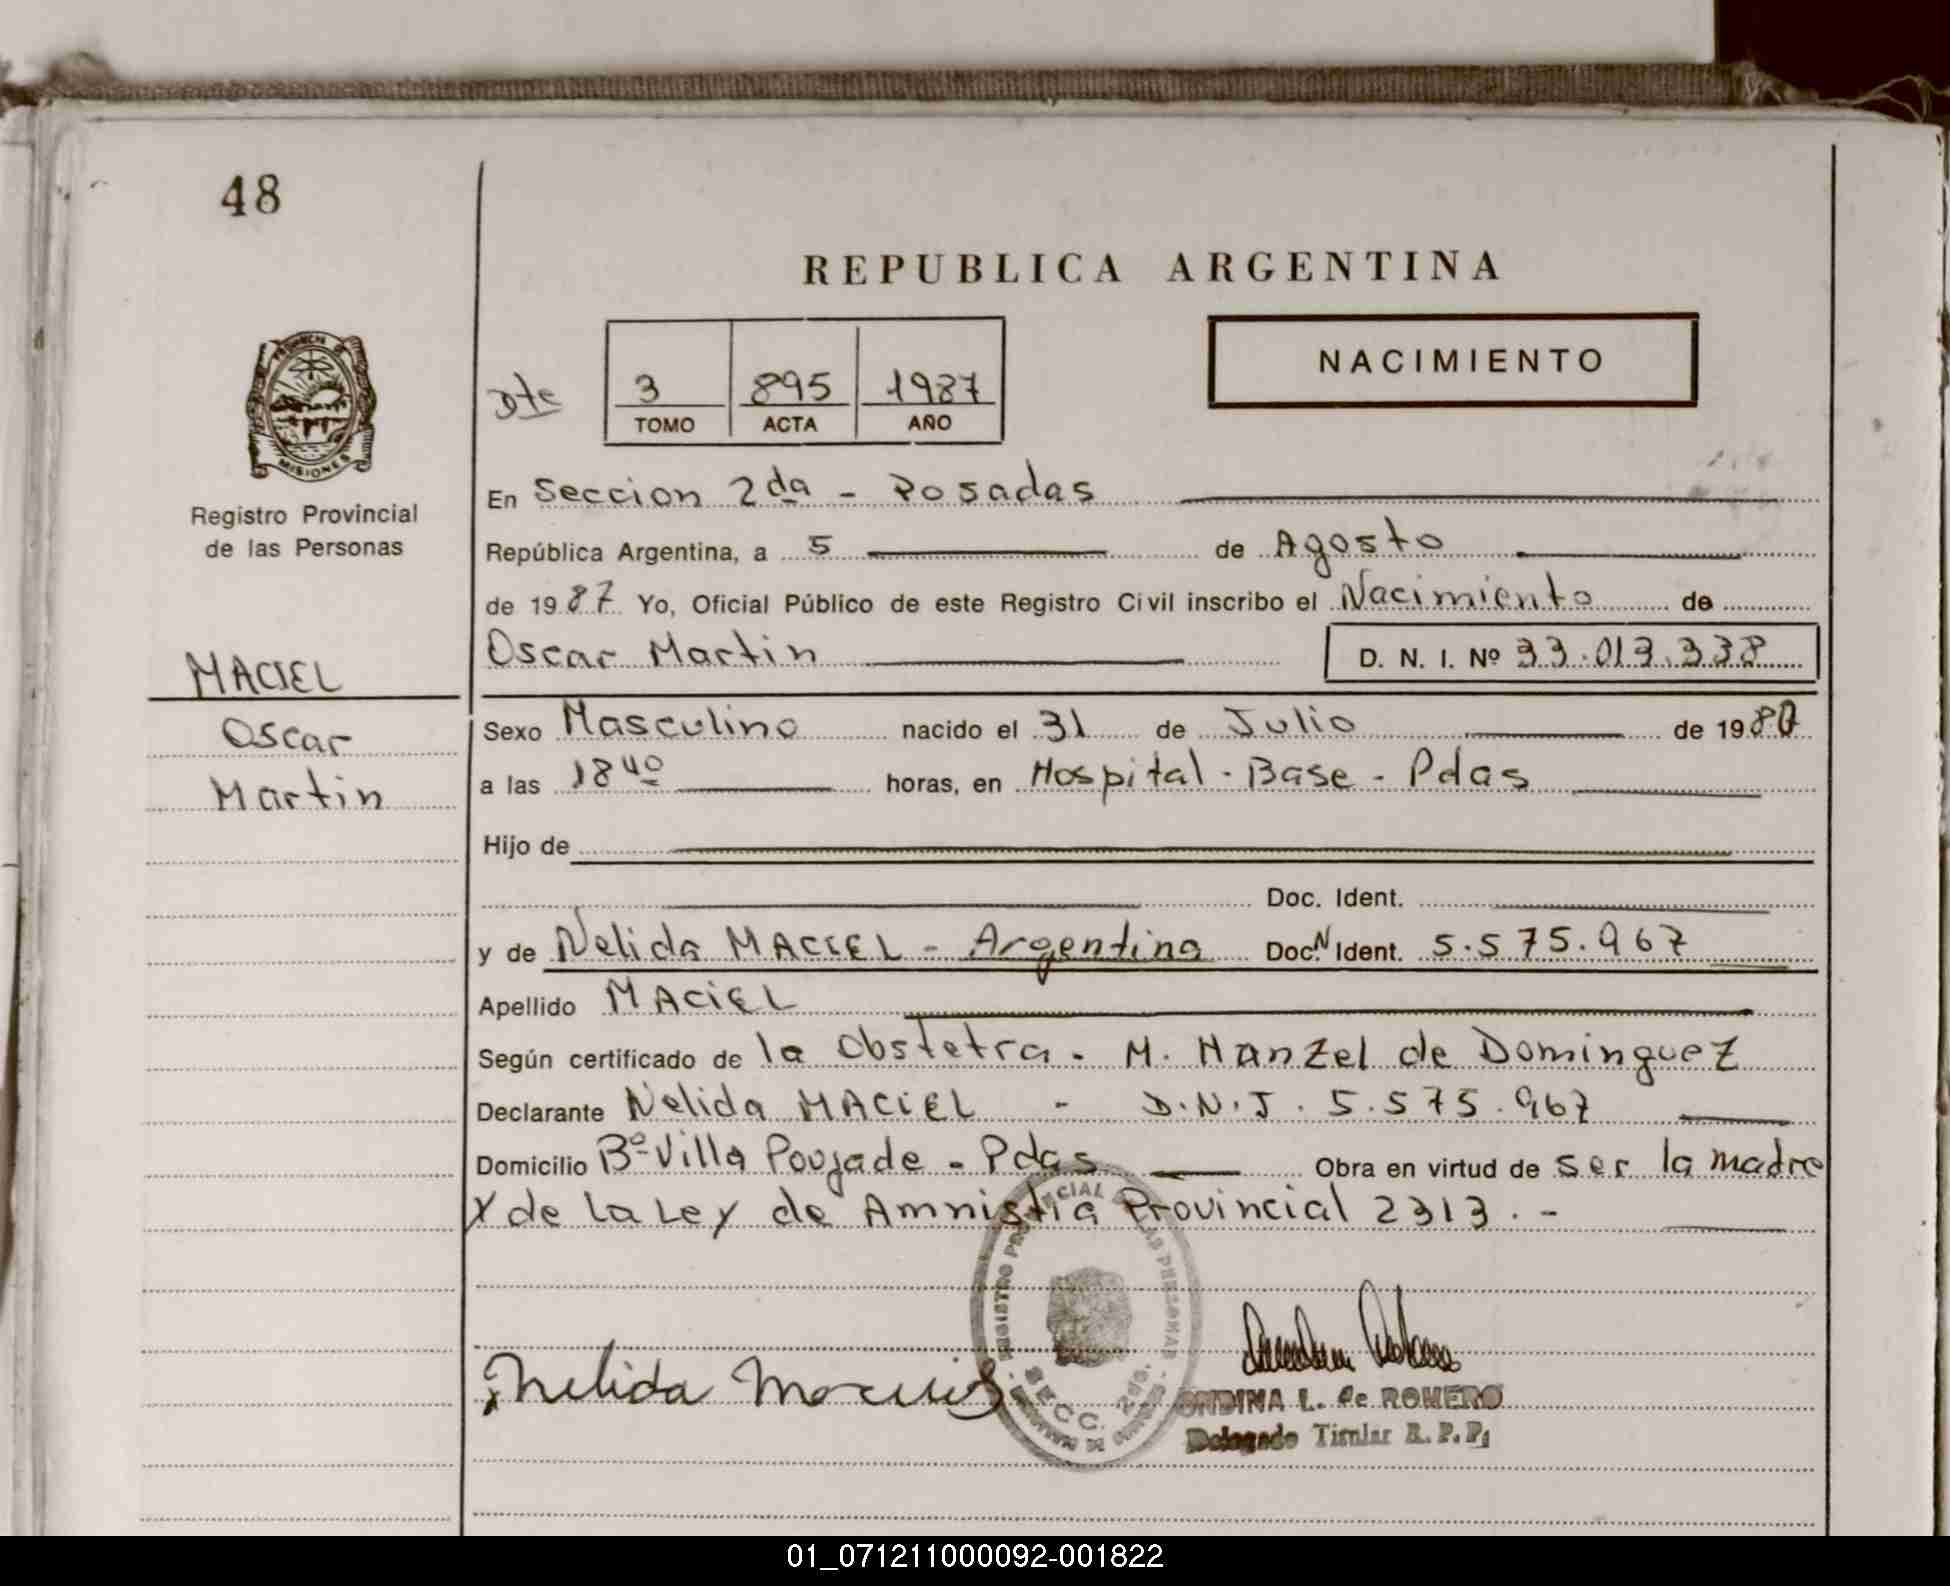 48
REPUBLICA ARGENTINA
Dte 3 895 1987
TOMO ACTA AÑO
NACIMIENTO
PROVINCIA DE
MISIONES
Registro Provincial
de las Personas
En Seccion 2da - Posadas
República Argentina, a 5 de Agosto
de 1987 Yo, Oficial Público de este Registro Civil inscribo el Nacimiento de
Oscar Martin D. N. I. Nº 33.013.338
MACIEL
Oscar
Martin
Sexo Masculino nacido el 31 de Julio de 1987
a las 18 40 horas, en Hospital - Base - Pdas
Hijo de
Doc. Ident.
y de Nelida MACIEL - Argentina Doc. N Ident. 5.575.967
Apellido MACIEL
Según certificado de la Obstetra - M. Hanzel de Dominguez
Declarante Nelida MACIEL - D.N.I. 5.575.967
Domicilio Bº Villa Poujade - Pdas Obra en virtud de ser la madre
Y de La Ley de Amnistia Provincial 2313.-
REGISTRO PROVINCIAL DE LAS PERSONAS
SECC. 2da.
Nelida Maciel
ONDINA L. de ROMERO
Delegado Titular R. P. P.
01_071211000092-001822